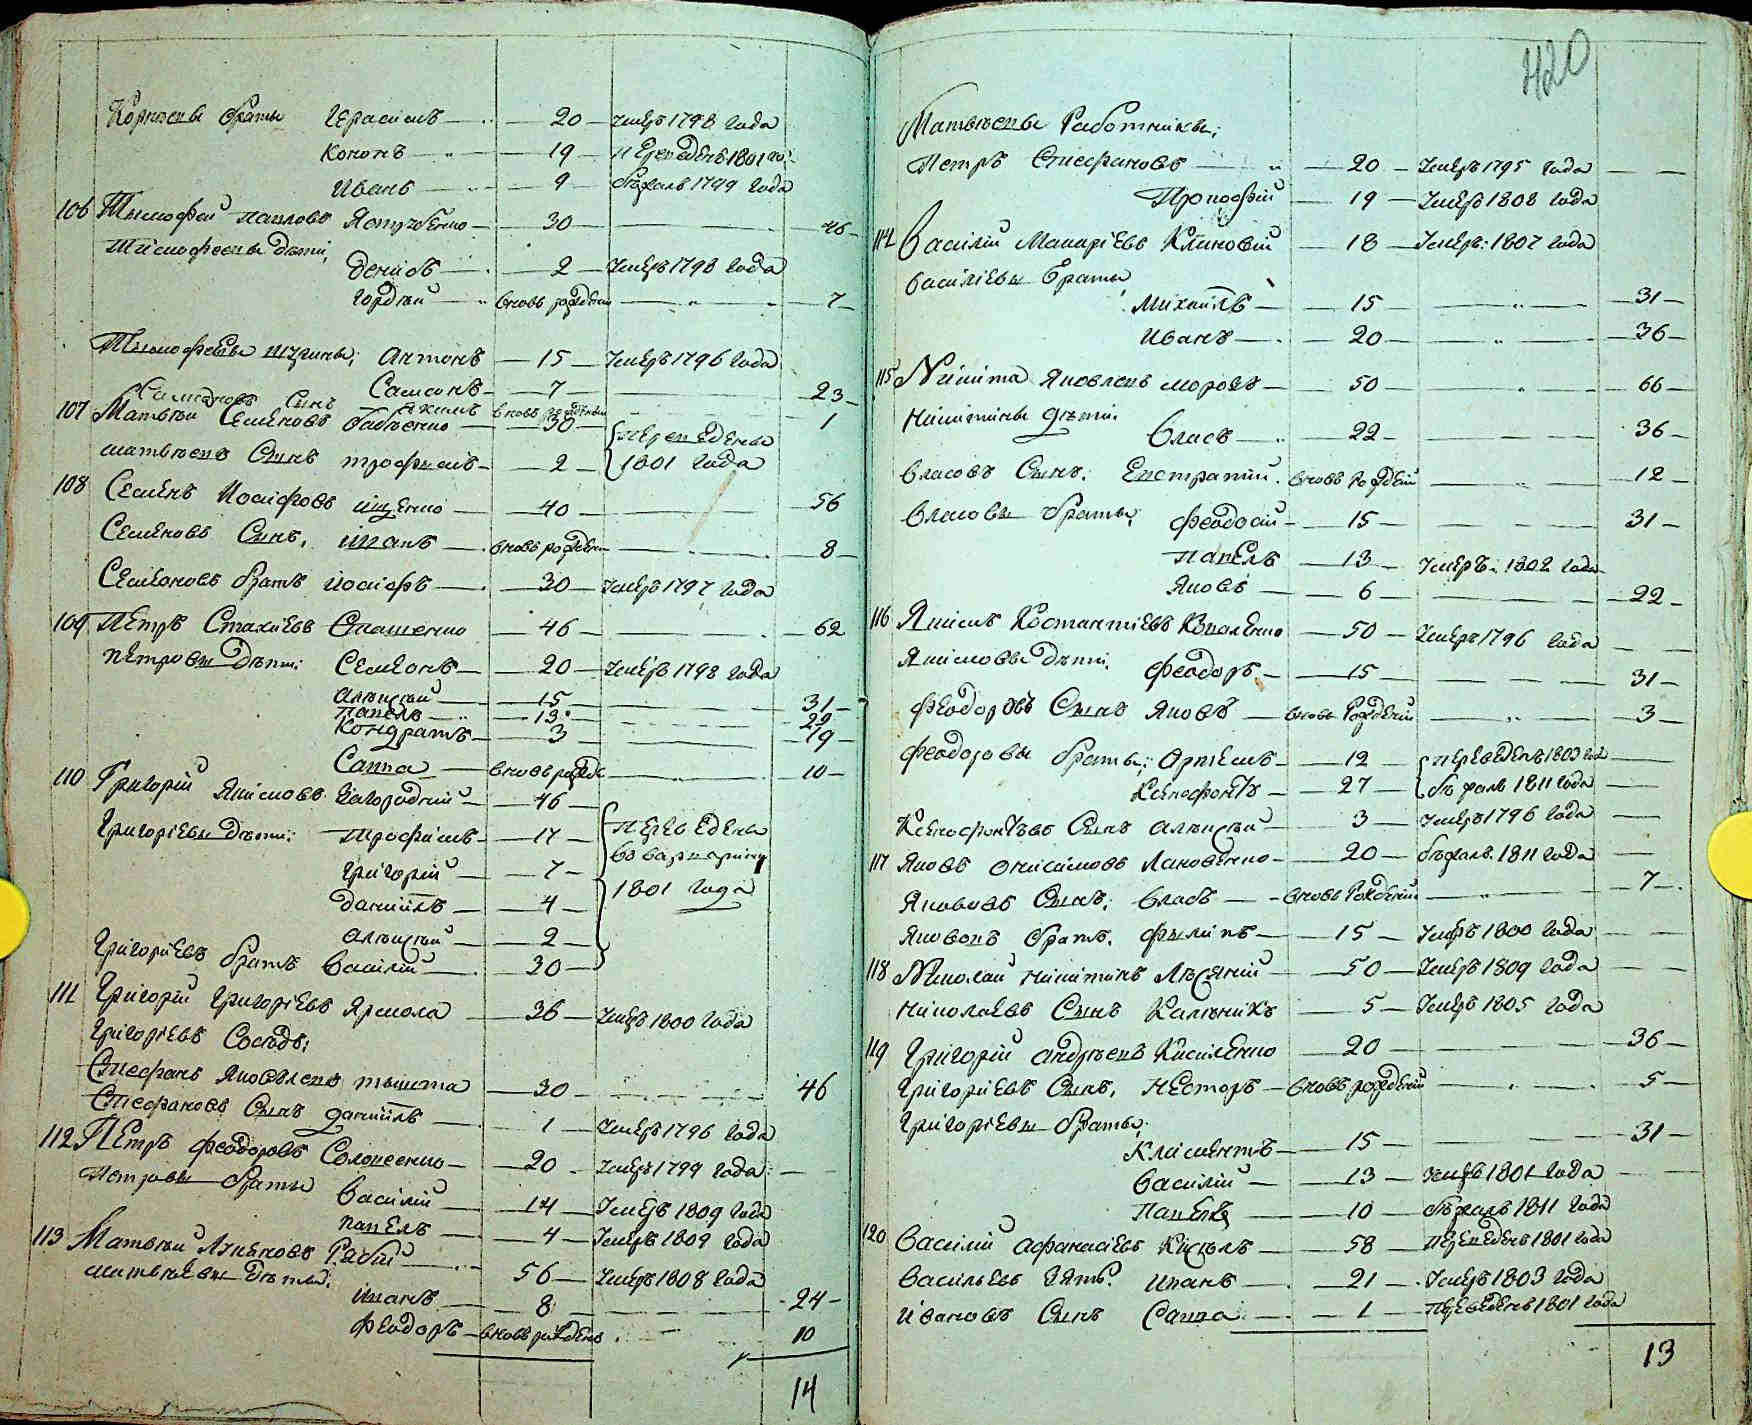 Корнеевы браты Герасимъ — 20 — умеръ 1798 года
Кононъ — 19 — переведенъ 1801 го:
Иванъ — 9 — бежалъ 1799 года
106 Тымофей Павловъ — 30 — 46
Тимофеевы дети,
Денисъ — 2 — умеръ 1798 года
Гордей — вновь рожденъ — 7
Тымофеевы шурины; Антонъ — 15 — умеръ 1796 года
Самсонъ — 7 — 23
Самсоновъ сынъ Екимъ вновь рожденый — 1
107 Матвей Семеновъ Бабченко — 30 — переведены
Матвеевъ сынъ Трофимъ — 2 — 1801 года
108 Семенъ Иосифовъ Ищенко — 40 — 56
Семеновъ сынъ, Иванъ — вновь рожден — 8
Семеновъ братъ Иосифъ — 30 — умеръ 1797 года
109 Петръ Стахиевъ Сташенко — 46 — 62
Петровы дети: Семенъ — 20 — умеръ 1798 года
Алексей — 15 — 31
Павелъ — 13 — 29
Кондратъ — 3 — 19
Савва — вновь рожде — 10
110 Григорий Якимовъ Загородний — 46 —
Григориевы дети: Трофимъ — 17 — переведены
Григорий — 7 —
Даниилъ — 4 — 1801 года
Алексей — 2 —
Григориевъ братъ Василий — 30 —
111 Григорий Григориевъ Ярмола — 36 — умеръ 1800 года
Григориевъ соседъ:
Стефанъ Яковлевъ — 30 — 46
Стефановъ сынъ Даниилъ — 1 — умеръ 1796 года
112 Петръ Феодоровъ — 20 — умеръ 1799 года
Петровы браты Василий — 14 — умеръ 1809 года
Павелъ — 4 — умеръ 1809 года
113 Матвей Рабий — 56 — умеръ 1808 года
Матвеевы дети:
Иванъ — 8 — 24
Феодоръ — вновь рожденъ — 10
14
420
Матвеевы работники;
Петръ Стефановъ — 20 — умеръ 1795 года
Прокофий — 19 — умеръ 1808 года
114 Василий Макариевъ Климовий — 18 — умеръ: 1807 года
Василиевы браты
Михаилъ — 15 — 31
Иванъ — 20 — 36
115 Никита Яковлевъ Морозъ — 50 — 66
Никитины дети:
Власъ — 22 — 36
Власовъ сынъ: Евстратий. вновь рожденый — 12
Власовы браты; Феодосий — 15 — 31
Павелъ — 13 — умеръ: 1802 года
Яковъ — 6 — 22
116 Якимъ Костантиевъ — 50 — умеръ 1796 года
Якимовы дети; Феодоръ — 15 — 31
Феодоровъ сынъ Яковъ — вновь рожденый — 3
Феодоровы браты; Артемъ — 12 — переведенъ 1803 год
Ксенофонтъ — 27 — бежалъ 1811 года
Ксенофонтовъ сынъ Алексей — 3 — умеръ 1796 года
117 Яковъ Онисимовъ Лановенко — 20 — бежалъ. 1811 года
Яковлевъ сынъ; Власъ — вновь рожденый — 7
Яковлевъ братъ. Филипъ — 15 — умеръ 1800 года
118 Николай Никитинъ — 50 — умеръ 1809 года
Николаевъ сынъ Каленикъ — 5 — умеръ 1805 года
119 Григорий Андреевъ Кисиленко — 20 — 36
Григориевъ сынъ, Несторъ — вновь рожденый — 5
Григориевы браты;
Климентъ — 15 — 31
Василий — 13 — умеръ 1801 года
Павелъ — 10 — бежалъ 1811 года
120 Василий Афанасиевъ — 58 — переведенъ 1801 года
Васильевъ зять. Иванъ — 21 — умеръ 1803 года
Ивановъ сынъ Савва — 1 — переведенъ 1801 года
13